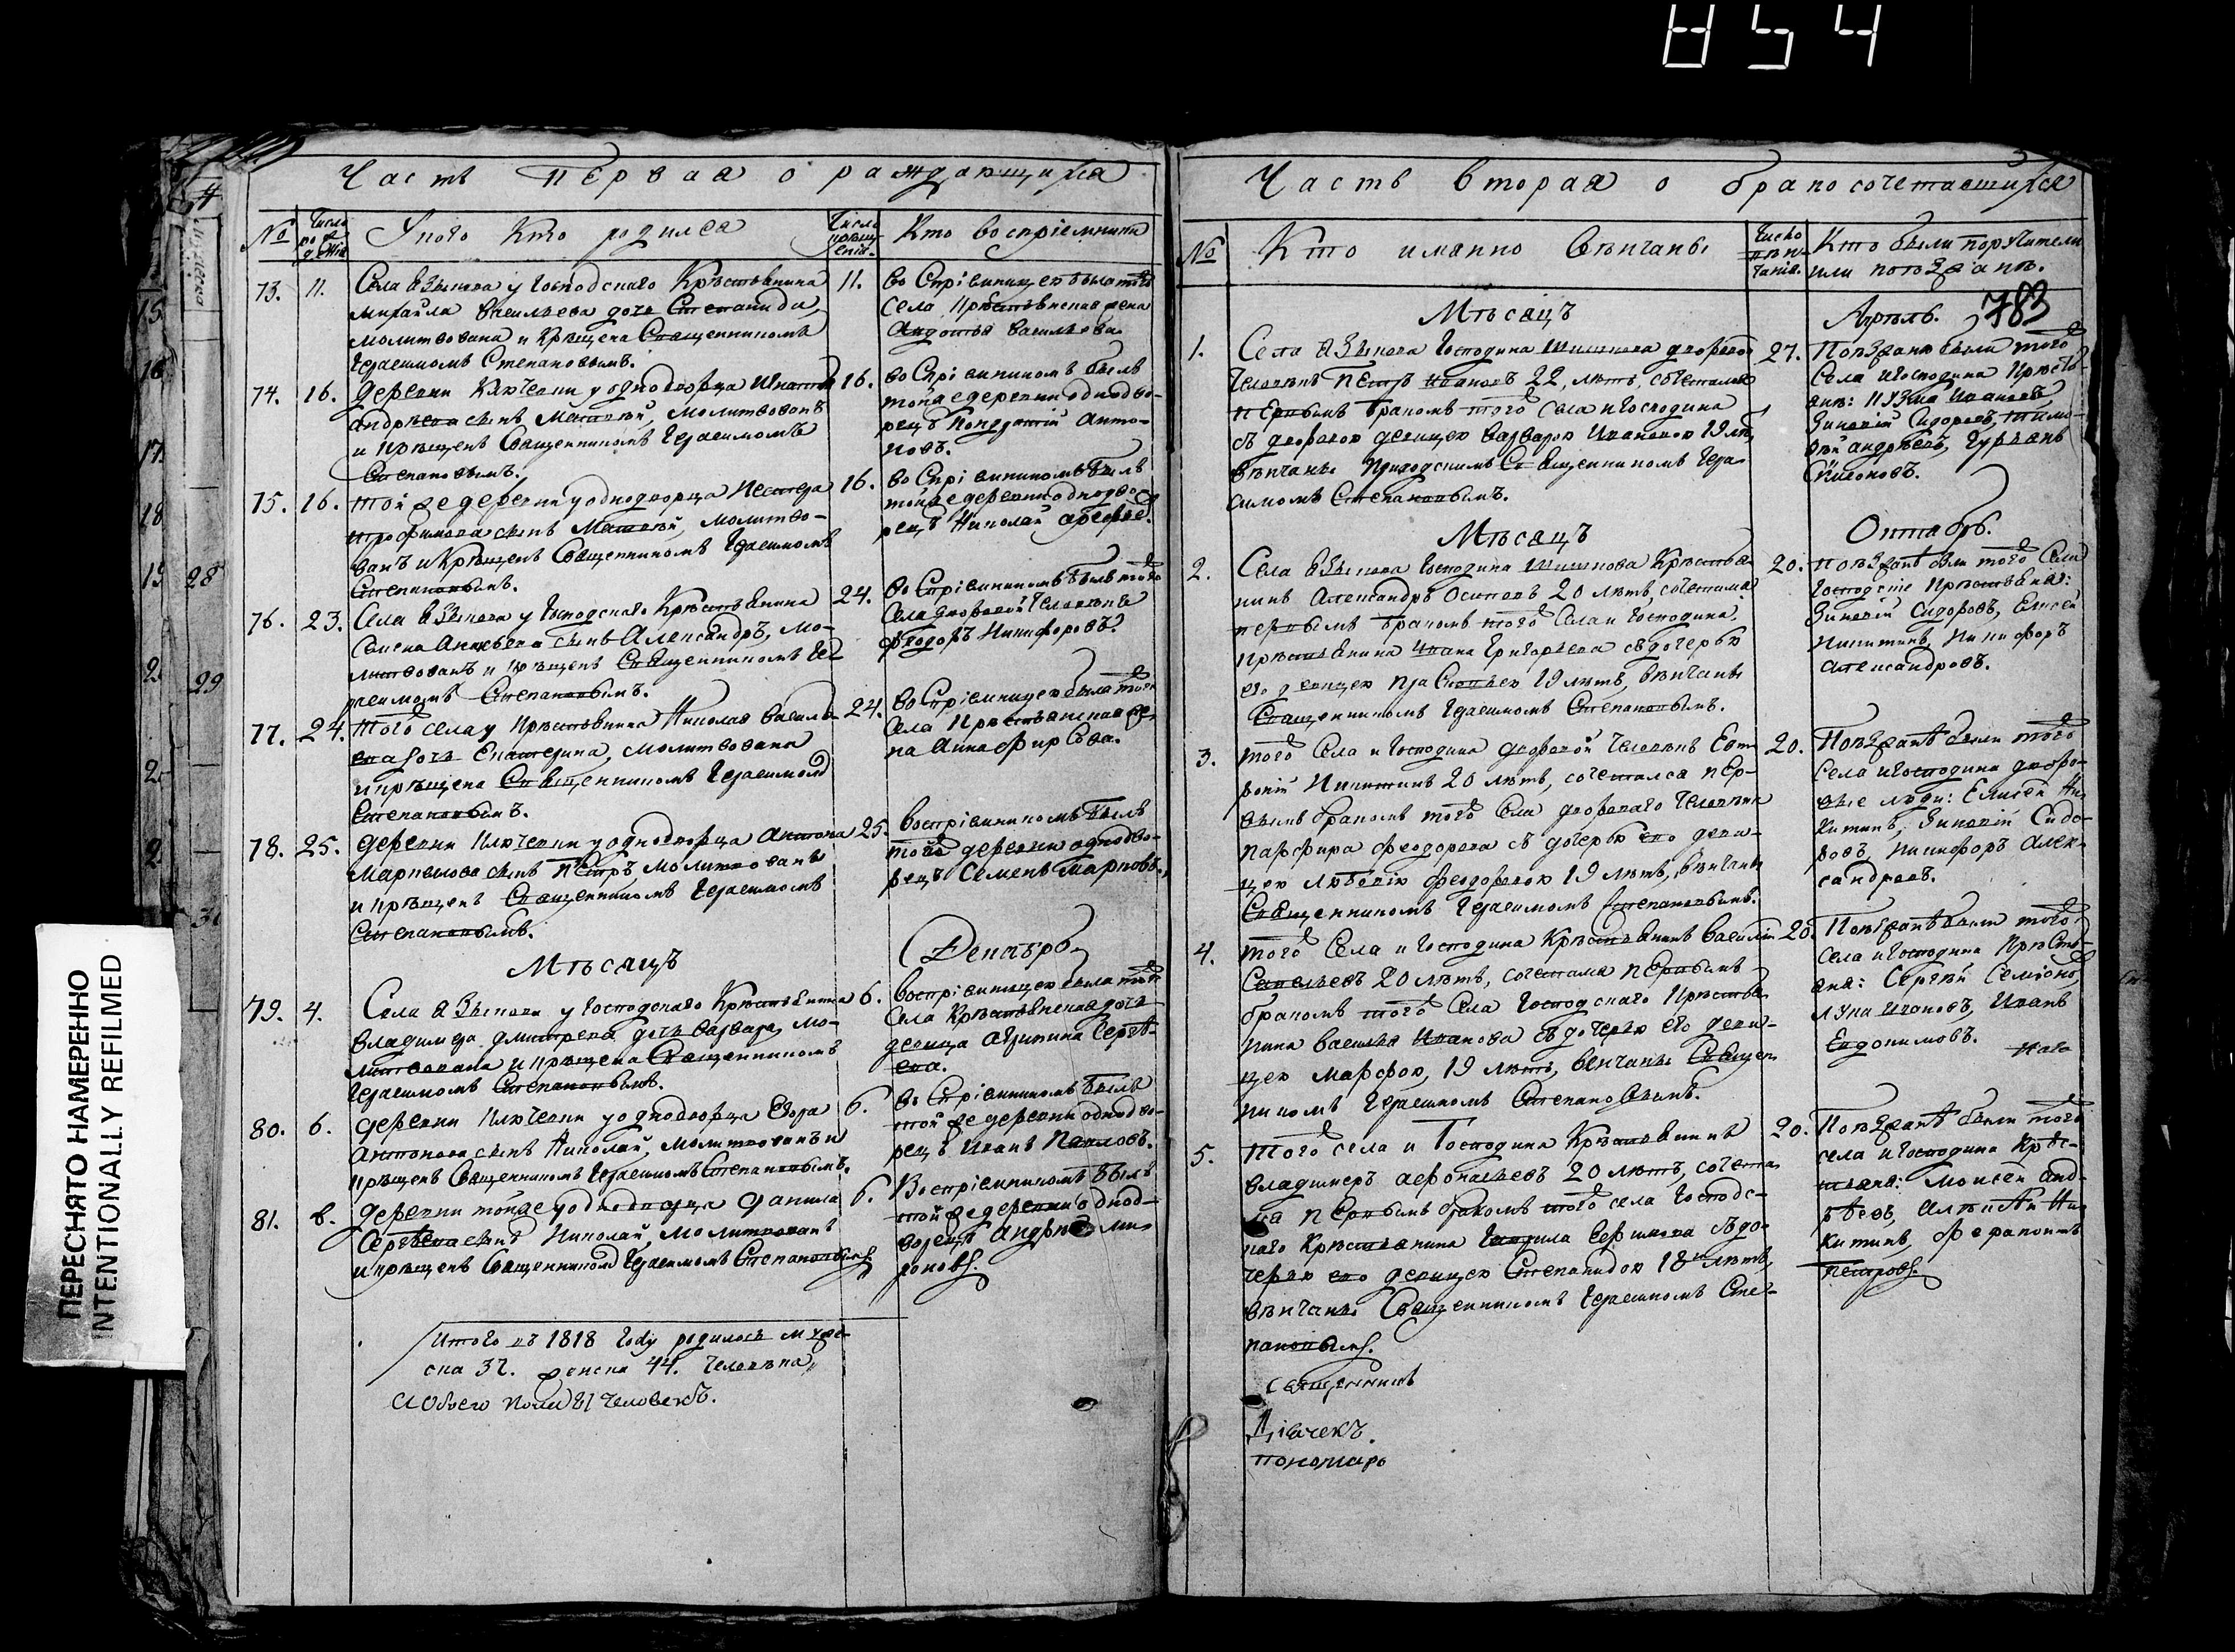 854
783
ПЕРЕСНЯТО НАМЕРЕННО
INTENTIONALLY REFILMED
Часть Первая о раждающихся
№ Число рожденія У кого кто родился Число крещенія Кто воспріемники
73. 11. Села Языкова у Господскаго Крестьянина 11.
Михайла Васильева дочь Степанида,
молитвована и крещена Священникомъ
Герасимомъ Степановымъ.
воспріемницею была того
села крестьянская жена
Авдотья Васильева
74. 16. деревни Ключевки у однодворца Игнатья 16.
Андреева сынъ Матвей, молитвованъ
и крещенъ Священникомъ Герасимомъ
Степановымъ.
воспріемникомъ былъ
тойже деревни однодво-
рецъ Кондратій Анто-
новъ.
75. 16. той же деревни у однодворца Нестера 16.
Трофимова сынъ Матвей, молитво-
ванъ и крещенъ Священникомъ Герасимомъ
Степановымъ.
воспріемникомъ былъ
тойже деревни однодво-
рецъ Николай
76. 23. Села Языкова у Господскаго Крестьянина 24.
Семена сынъ Александръ, мо-
литвованъ и крещенъ Священникомъ Ге-
расимомъ Степановымъ.
воспріемникомъ былъ того
села дворовой человекъ
Феодоръ Никифоровъ.
77. 24. того села у крестьянина Николая Василь- 24.
ева дочь Екатерина, молитвована
и крещена Священникомъ Герасимомъ
Степановымъ.
воспріемницею была того
села крестьянская же-
на Анна Фирсова.
78. 25. деревни Ключевки у однодворца Антона 25.
Маркелова сынъ Петръ, молитвованъ
и крещенъ Священникомъ Герасимомъ
Степановымъ.
воспріемникомъ былъ
тойже деревни однодво-
рецъ Семенъ Марковъ.
Мѣсяцъ Декабрь
79. 4. Села Языкова у Господскаго Крестьянина 6.
Владимера Дмитрева дочь Варвара, мо-
литвована и крещена Священникомъ
Герасимомъ Степановымъ.
воспріемницею была того
села крестьянская дочь
девица Акулина Серге-
ева.
80. 6. деревни Ключевки у однодворца Егора 6.
Антонова сынъ Николай, молитвованъ и
крещенъ Священникомъ Герасимомъ Степановымъ.
воспріемникомъ былъ
той же деревни однодво-
рецъ Иванъ Павловъ.
81. 6. деревни тойже у однодворца Данила 6.
Сергѣева сынъ Николай, молитвованъ
и крещенъ Священникомъ Герасимомъ Степановымъ
Воспріемникомъ былъ
той же деревни однод-
ворецъ Андрей Ми-
роновъ.
Итого въ 1818 году родилось муже-
ска 37. женска 44. человека,
А обоего полу 81 человекъ.
Часть вторая о бракосочетавшихся
№ Кто имянно вѣнчаны Число вѣнчанія. Кто были поручители или поѣзжанѣ.
Мѣсяцъ Апрель.
1. Села Языкова Господина Шишкова дворовой 27.
человекъ Петръ Ивановъ 22, летъ, сочетался
первымъ бракомъ того села и Господина
съ дворовою девицею Варварою Ивановою 19 летъ
вѣнчаны Приходскимъ Священникомъ Гера-
симомъ Степановымъ.
Поѣзжанѣ были того
села и Господина Крестья-
анѣ: Козма Ивановъ,
Зиновій Сидоровъ, Тимо-
фей Андреевъ, Гурьянъ
Симоновъ.
Мѣсяцъ Октябрь.
2. Села Языкова Господина Шишкова Крестья- 20.
нинъ Александръ Осиповъ 20 летъ, сочетался
первымъ бракомъ того села и Господина
крестьянина Ивана Григорьева съ дочерью
его девицею Прасковьею 19 летъ, вѣнчаны
Священникомъ Герасимомъ Степановымъ.
поѣзжанѣ были того села
Господскіе крестьянѣ:
Зиновій Сидоровъ, Елисей
Никитинъ, Никифоръ
Александровъ.
3. того села и Господина дворовой человекъ 20.
Никитинъ 20 летъ, сочетался пер-
вымъ бракомъ того села двороваго человека
Парфира Феодорова съ дочерью его деви-
цею Любовію Феодоровою 19 летъ, вѣнчаны
Священникомъ Герасимомъ Степановымъ.
Поѣзжанѣ были того
села и Господина дворо-
вые люди: Елисей Ни-
китинъ, Зиновій Сидо-
ровъ, Никифоръ Алек-
сандровъ.
4. того села и Господина Крестьянинъ Василій 20.
Савельевъ 20 летъ, сочетался первымъ
бракомъ того села Господскаго Крестья-
нина Василья Иванова съ дочерью его деви-
цею Марфою, 19 летъ, венчаны Священ-
никомъ Герасимомъ Степановымъ.
Поѣзжанѣ были того
села и Господина Кресть-
янѣ: Сергѣй Семіоновъ,
Лука Ивановъ, Иванъ
Евдокимовъ.
5. Того села и Господина Крестьянинъ 20.
Владимеръ Аѳонасьевъ 20 летъ, сочетал-
ся первымъ бракомъ того села Господс-
каго Крестьянина Гаврила Ефимова съ до-
черью его девицею Степанидою 18 летъ,
вѣнчаны Священникомъ Герасимомъ Сте-
пановымъ.
Поѣзжанѣ были того
села и Господина Крес-
тьянѣ: Моисей Анд-
рѣевъ, Алексѣй Ни-
китинъ, Ферапонтъ
Петровъ.
священникъ
Дьячекъ.
пономарь